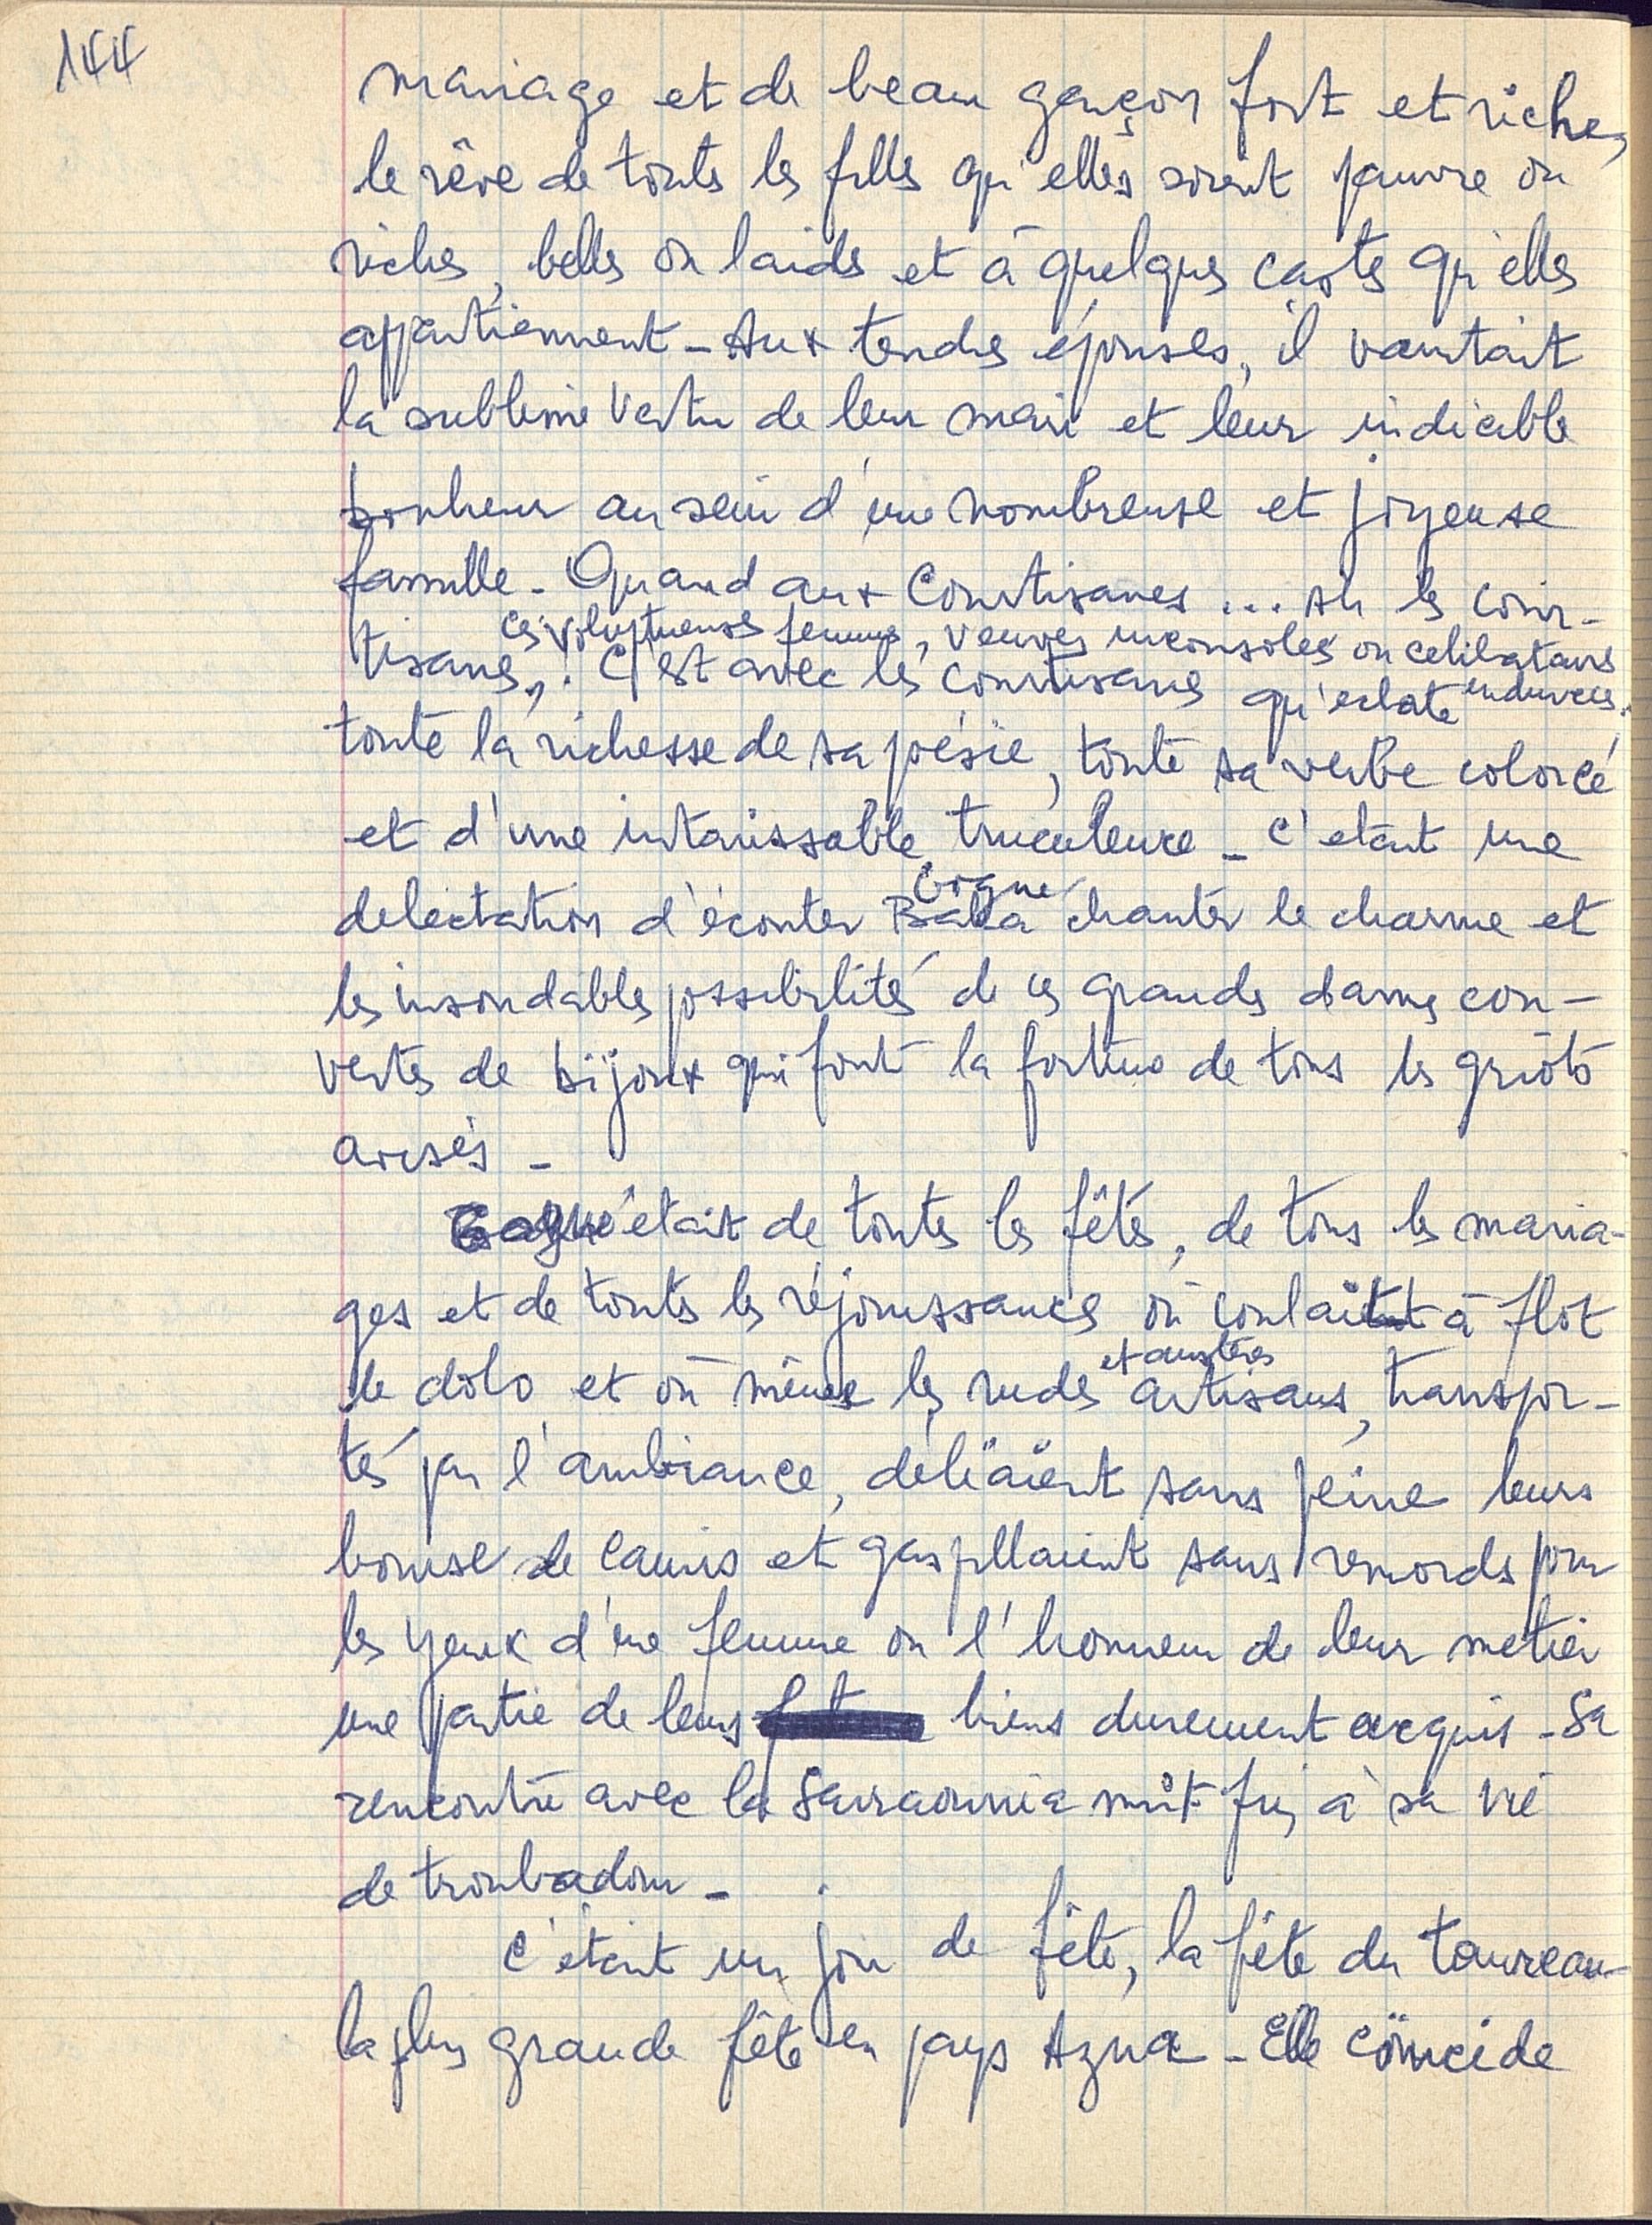 144
mariage et de beau garçon fort et riche,
le rêve de toutes les filles qu'elles soient pauvre ou
riches, belles ou laides et à quelques castes qu'elles
appartiennent - Aux tendres épouses, il vantait
la sublime vertu de leur mari et leur indicible
bonheur au sein d'une nombreuse et joyeuse
famille - Quand aux Courtisanes ... Ah les cour-
ces voluptueuses femmes, veuves inconsolés ou celibataires
endurcies.
tisanes, ! C'est avec les courtisanes qu'eclate
toute la richesse de sa poésie, toute sa verve colorée
et d'une intarissable truculence - C'etait une
Gogué
delectation d'écouter Baba chanter le charme et
les insondables possibilités de ces grandes dames cou-
vertes de bijoux qui font la fortune de tous les griots
avisés -
Gogué était de toutes les fêtes, de tous les maria-
ges et de toutes les réjouissances où coulait à flot
et austères
le dolo et où même les rudes artisans, transpor-
tés par l'ambiance, déliaient sans peine leurs
bourse de cauris et gaspillaient sans remords pour
les yeux d'une femme ou l'honneur de leur metier
une partie de leurs biens durement acquis - Sa
rencontre avec la Sarraounia mit fin à sa vie
de troubadour -
C'était un jour de fête, la fête du taureau -
la plus grande fête en pays Azna - Elle coïncide